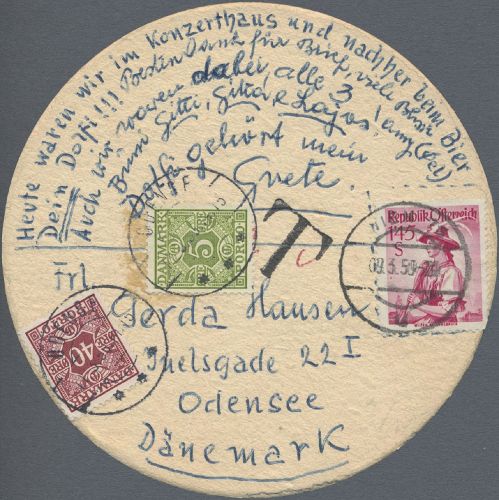 Heute waren wir im Konzerthaus und nachher beim Bier
Dein Dolfi!!! Besten Dank für Brief, viele
Auch wir waren dabei, alle 3
Bussi Gitti, Gitta & Lajos
Dolfi gehört mein
Grete.
T
DANMARK
5
PORTO
Republik Österreich
1'45
S
09.3.59
Frl
Gerda Hansen
40
DANMARK
PORTO
Juelsgade 22 I
Odensee
Dänemark